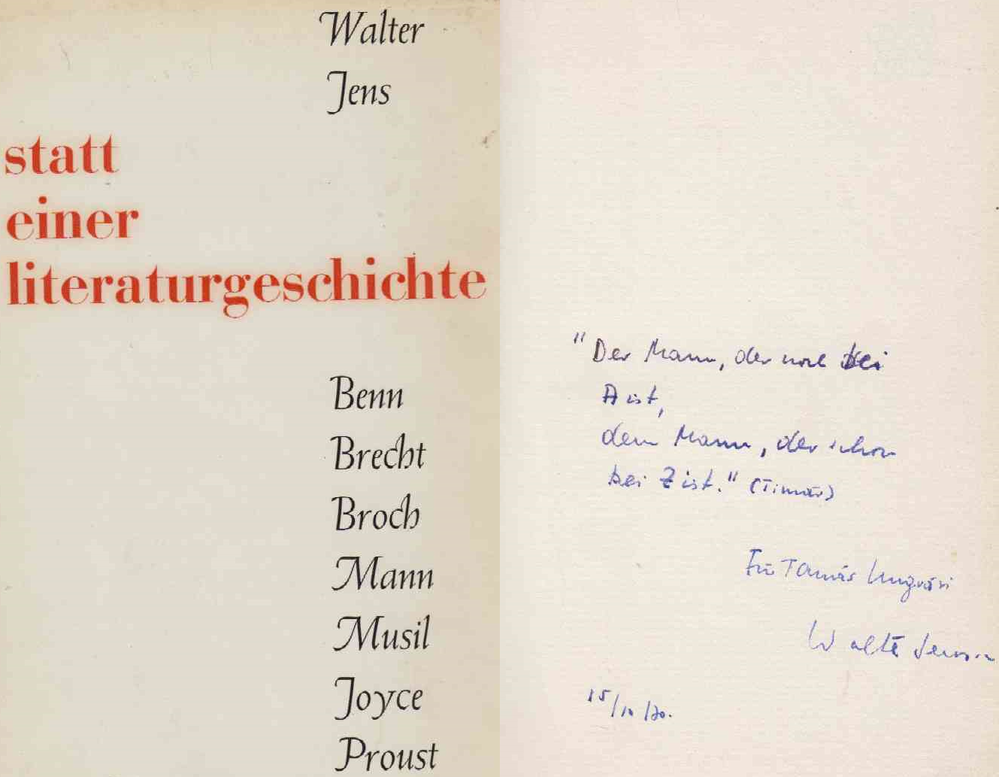 Walter
Jens
statt
einer
literaturgeschichte
Benn
Brecht
Broch
Mann
Musil
Joyce
Proust
"Der Mann, der noch bei
A ist,
dem Mann, der schon
bei Z ist." (Timár)
Für Tamás Ungvári
Walter Jens
15/10/70.